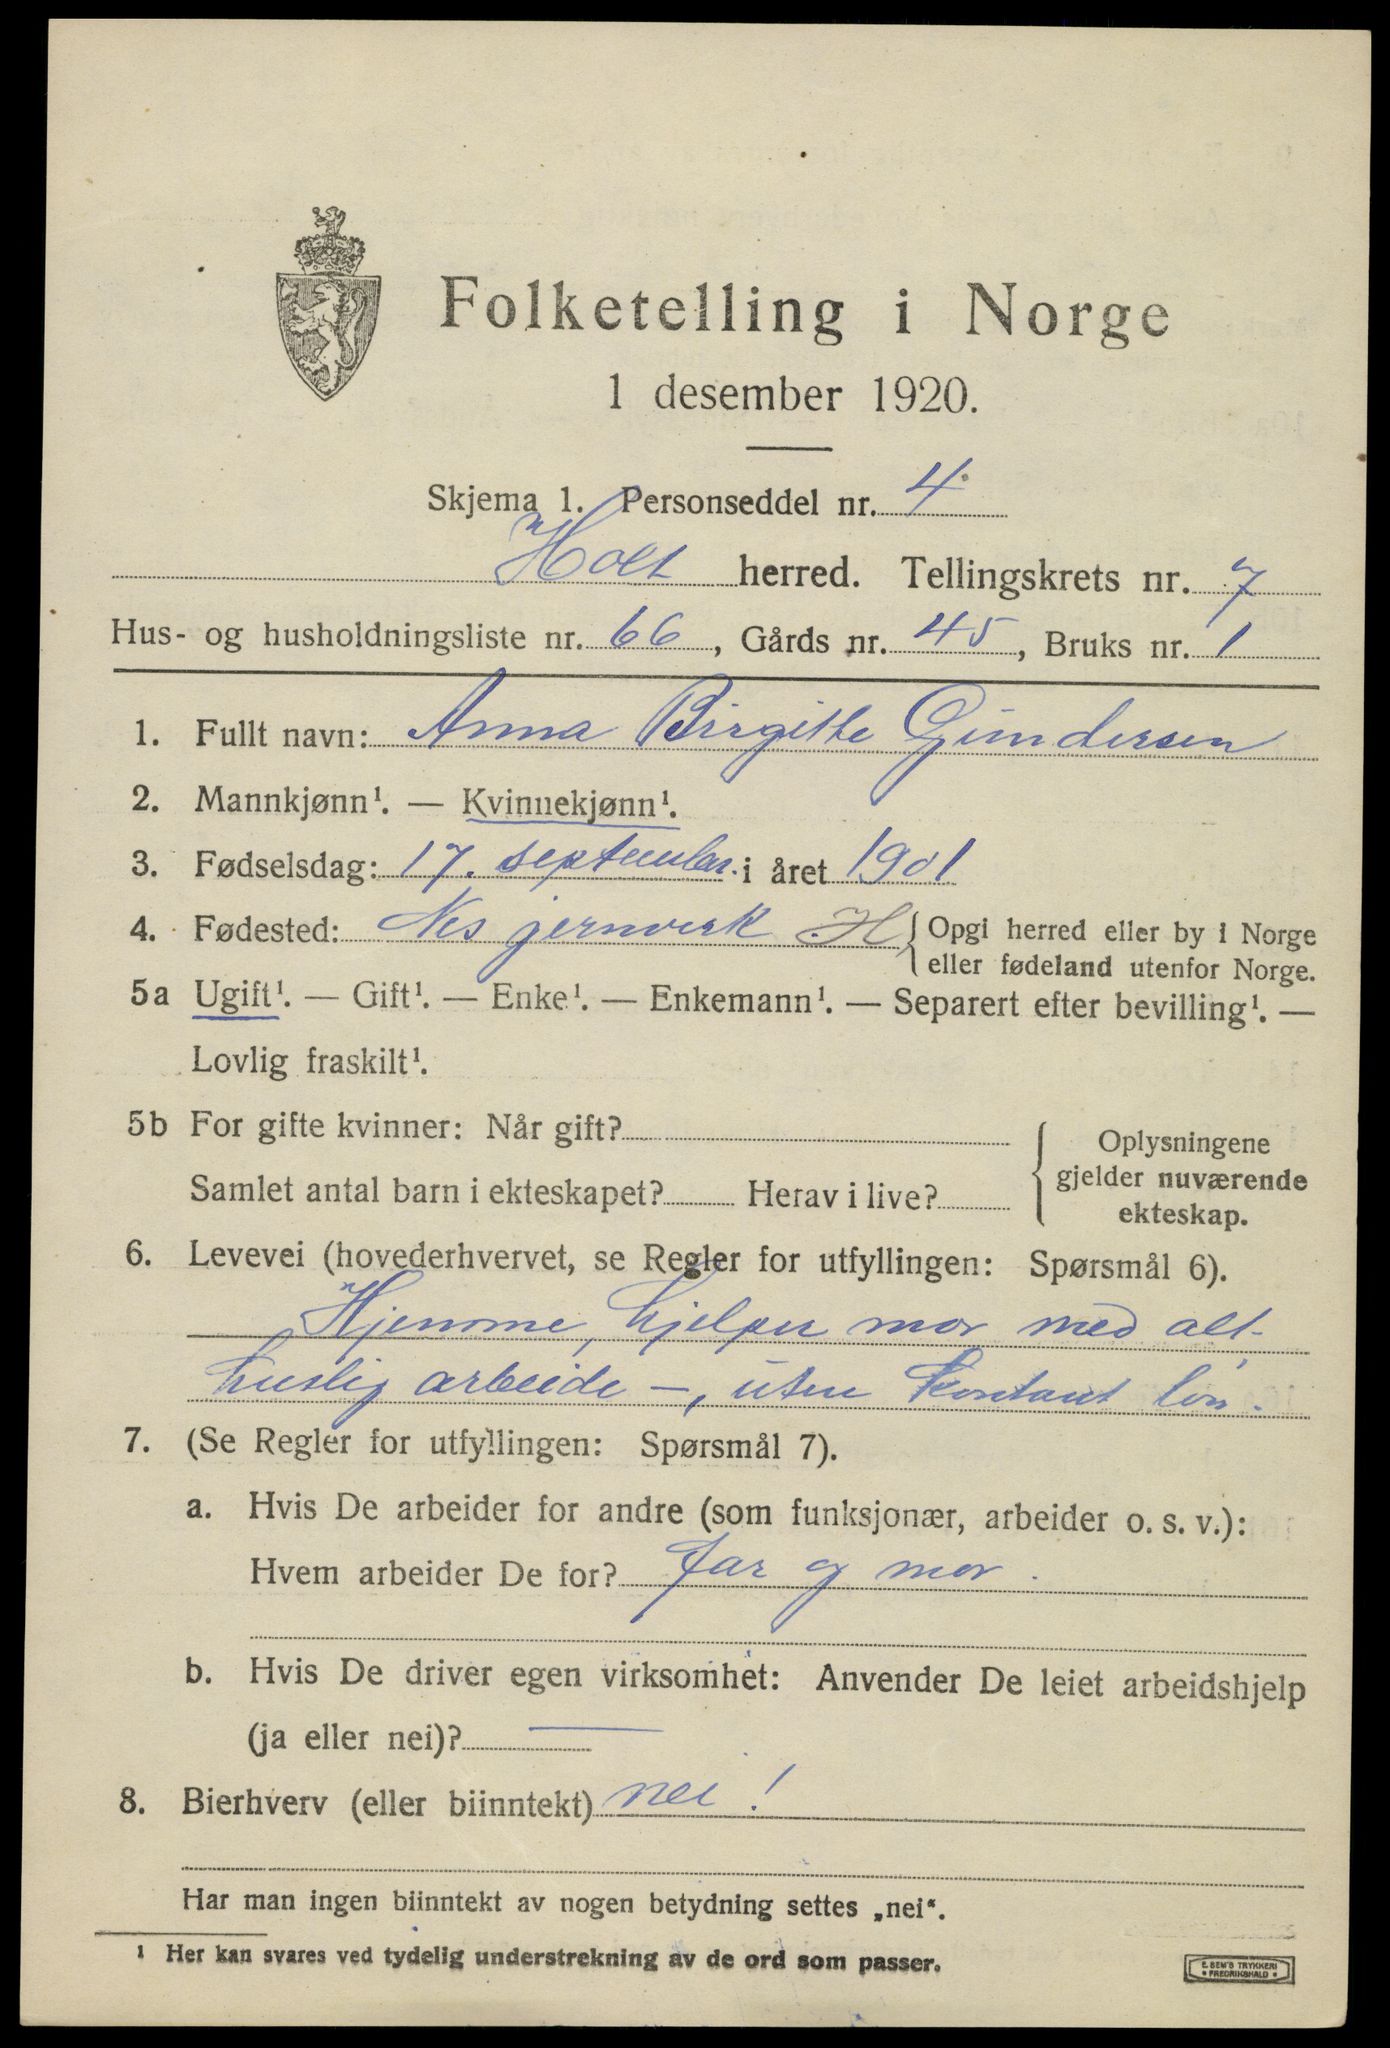 Folketelling i Norge
1 desember 1920.
Skjema 1. Personseddel nr. 4
Holt herred. Tellingskrets nr. 7
Hus- og husholdningsliste nr. 66, Gårds nr. 45, Bruks nr. 1
1. Fullt navn: Anna Birgithe Gundersen
2. Mannkjønn¹. — Kvinnekjønn¹.
3. Fødselsdag: 17. september i året 1901
4. Fødested: Nes jernverk H { Opgi herred eller by i Norge
eller fødeland utenfor Norge.
5a Ugift¹. — Gift¹. — Enke¹. — Enkemann¹. — Separert efter bevilling¹. —
Lovlig fraskilt¹.
5b For gifte kvinner: Når gift?
Samlet antal barn i ekteskapet? Herav i live?
{ Oplysningene
gjelder nuværende
ekteskap.
6. Levevei (hovederhvervet, se Regler for utfyllingen: Spørsmål 6).
Hjemme, hjelper mor med alt-
huslig arbeide —, uten kontant løn.
7. (Se Regler for utfyllingen: Spørsmål 7).
a. Hvis De arbeider for andre (som funksjonær, arbeider o. s. v.):
Hvem arbeider De for? far og mor.
b. Hvis De driver egen virksomhet: Anvender De leiet arbeidshjelp
(ja eller nei)? —
8. Bierhverv (eller biinntekt) nei!
Har man ingen biinntekt av nogen betydning settes „nei“.
¹ Her kan svares ved tydelig understrekning av de ord som passer.
E. SEM'S TRYKKERI
• FREDRIKSHALD •